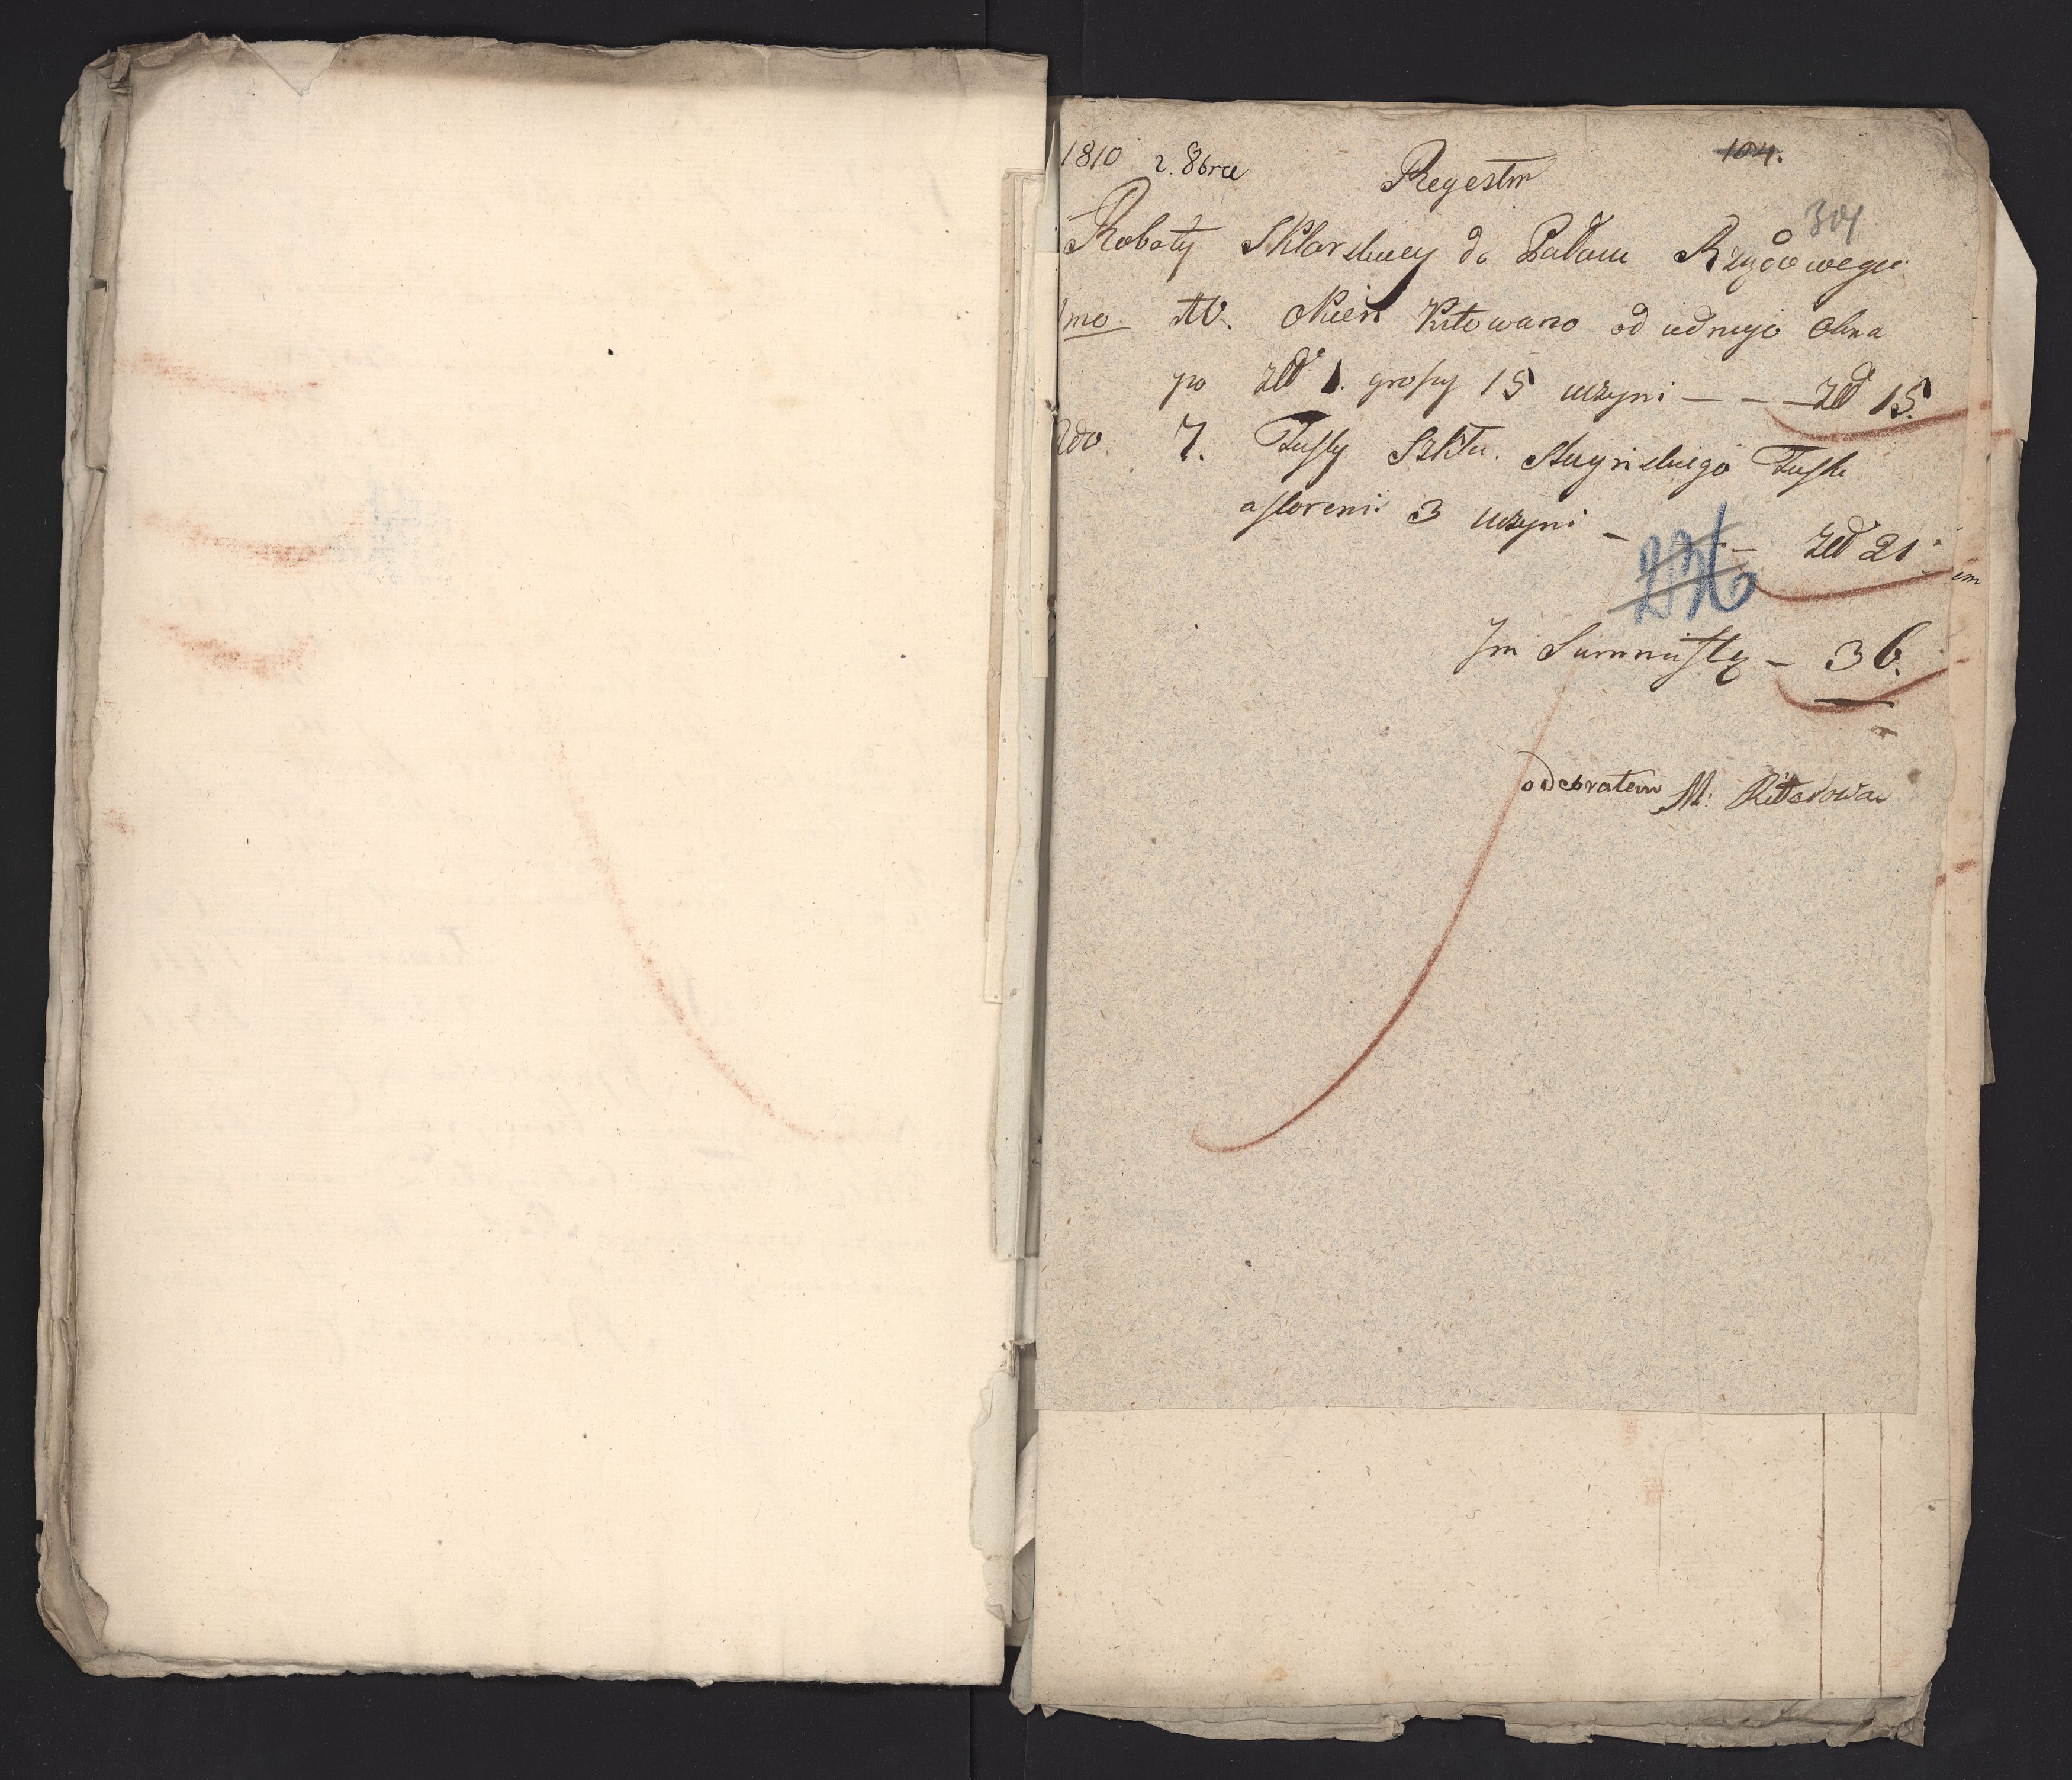 1810 2. 8bra Regestr 104.
304
Roboty Sklarskiey do Pałacu Rządowego
1mo 10. Okien Kitowano od iednego okna
po złł 1. groszy 15 uczyni — — — złł 15.
2do 7. Tafly Szkła Tafla
a floreni 3 uczyni — — złł 21
In Summa — 36.
odebrałem M: Riterowa